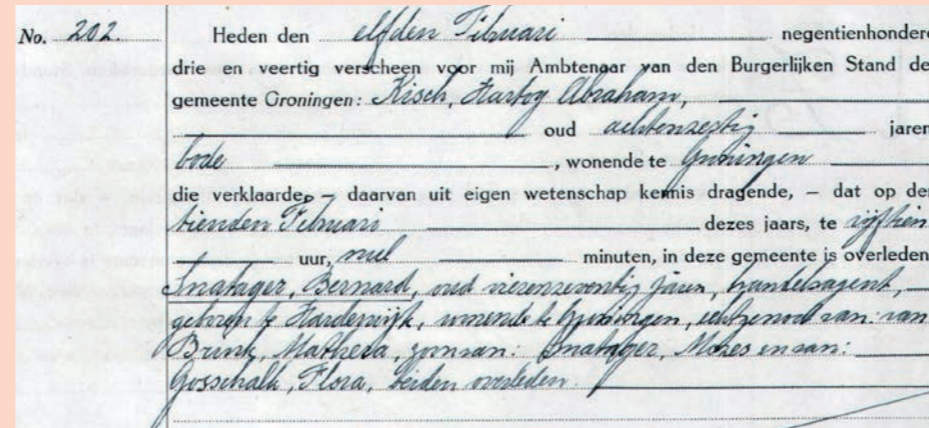 No. 202. Heden den elfden Februari negentienhonderd
drie en veertig verscheen voor mij Ambtenaar van den Burgerlijken Stand de
gemeente Groningen: Kisch, Hartog Abraham,
oud achtenzestig jaren
bode , wonende te Groningen
die verklaarde, – daarvan uit eigen wetenschap kennis dragende, – dat op den
tienden Februari dezes jaars, te vijftien
uur, nul minuten, in deze gemeente is overleden
Snatager, Bernard, oud vierenzeventig jaren, handelsagent,
geboren te Harderwijk, wonende te Groningen, echtgenoot van: van
Brink, Mathesa, zoon van: Snatager, Mozes en van:
Gosschalk, Flora, beiden overleden.